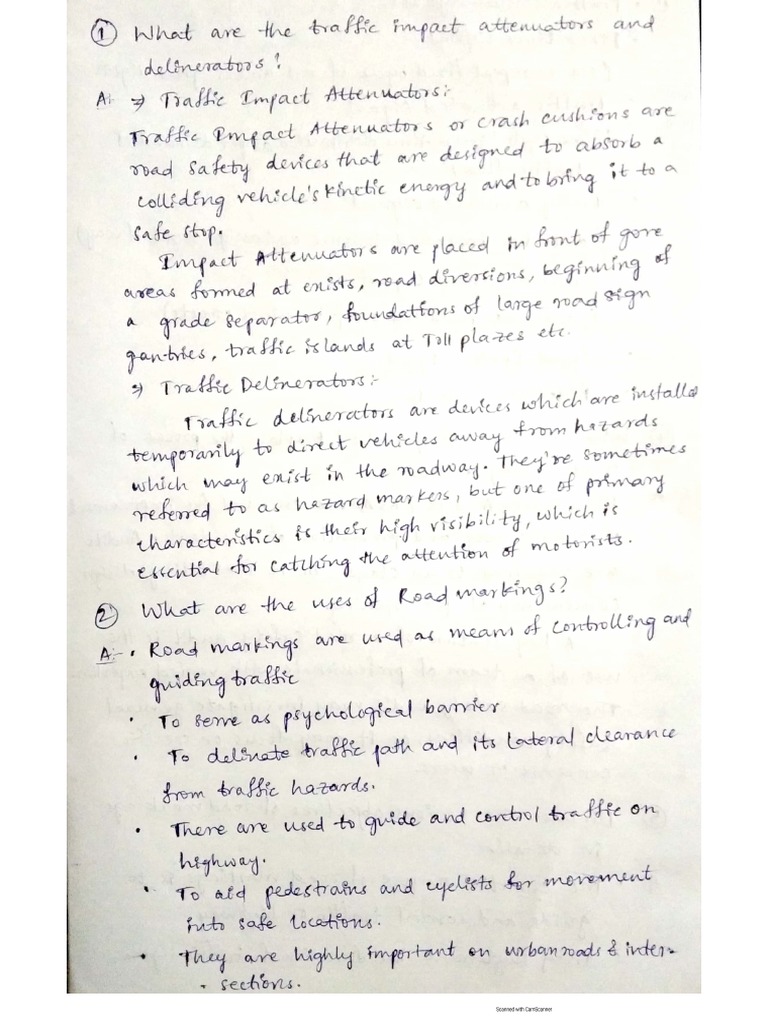 ① What are the traffic impact attenuators and
delinerators?
A:- ⇒ Traffic Impact Attenuators:-
Traffic Impact Attenuators or crash cushions are
road safety devices that are designed to absorb a
colliding vehicle's kinetic energy and to bring it to a
safe stop.
Impact Attenuators are placed in front of gore
areas formed at exists, road diversions, beginning of
a grade separator, foundations of large road sign
gantries, traffic islands at Toll plazes etc.
⇒ Traffic Delinerators:-
Traffic delinerators are devices which are installed
temporarily to direct vehicles away from hazards
which may exist in the roadway. They're sometimes
referred to as hazard markers, but one of primary
characteristics is their high visibility, which is
essential for catching the attention of motorists.
② What are the uses of Road markings?
A:- • Road markings are used as means of controlling and
guiding traffic
• To serve as psychological barrier
• To delinate traffic path and its Lateral clearance
from traffic hazards.
• There are used to guide and control traffic on
highway.
• To aid pedestrains and cyclists for movement
into safe locations.
• They are highly important on urban roads & inter-
sections.
Scanned with CamScanner